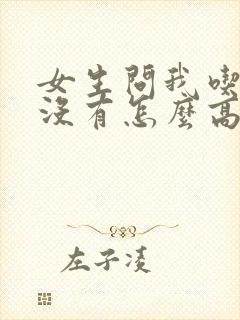 女生問我喫
沒有怎麼高
左子凌